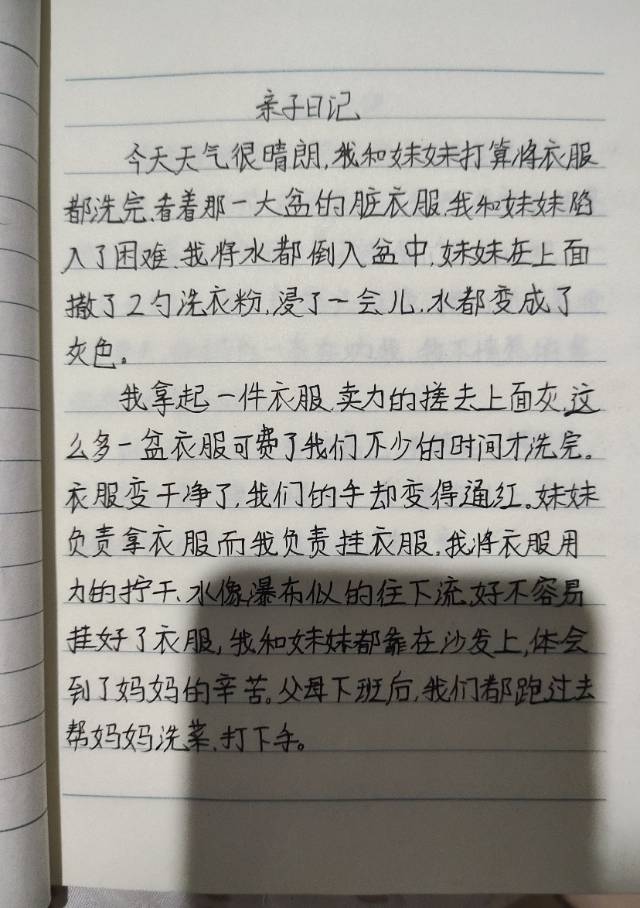 亲子日记
今天天气很晴朗,我和妹妹打算将衣服
都洗完,看着那一大盆的脏衣服,我和妹妹陷
入了困难、我将水都倒入盆中,妹妹在上面
撒了2勺洗衣粉,浸了一会儿,水都变成了
灰色。
我拿起一件衣服,卖力的搓去上面灰,这
么多一盆衣服可费了我们不少的时间才洗完。
衣服变干净了,我们的手却变得通红。妹妹
负责拿衣服而我负责挂衣服,我将衣服用
力的拧干、水像瀑布似的往下流,好不容易
挂好了衣服,我和妹妹都靠在沙发上,体会
到了妈妈的辛苦。父母下班后,我们都跑过去
帮妈妈洗菜、打下手。